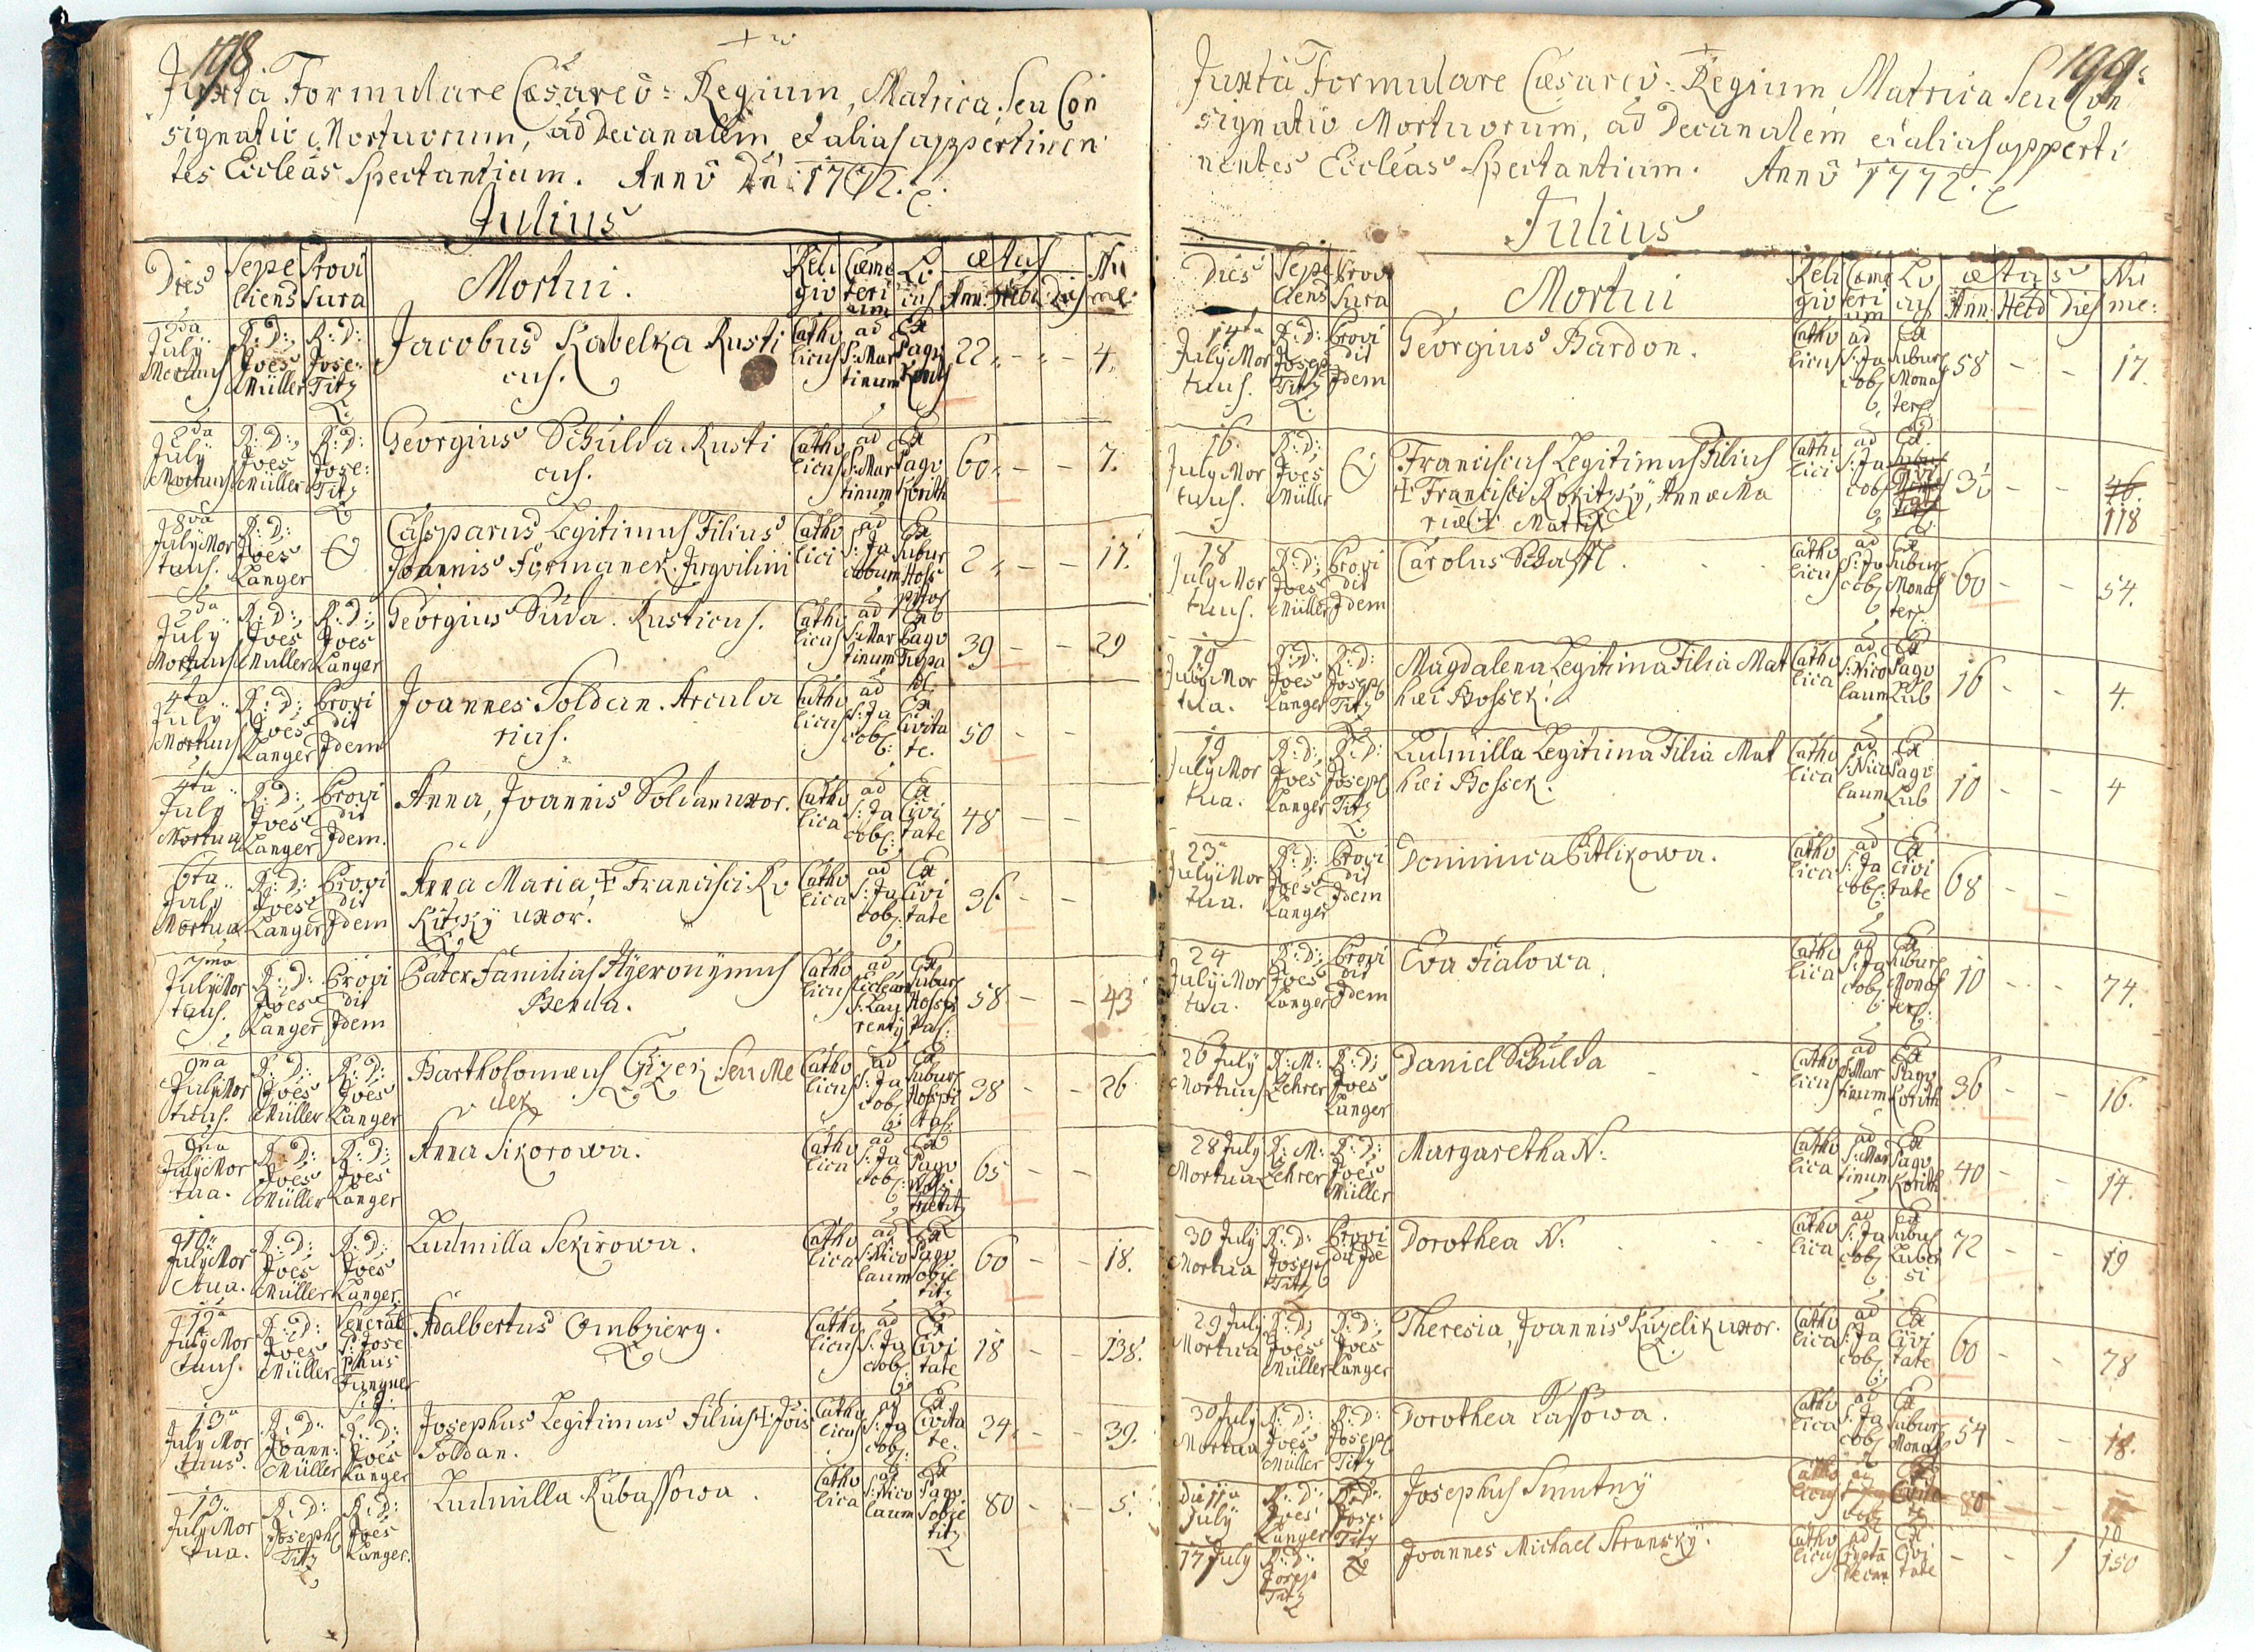 198
Juxta Formulare Cæsareo = Regium, Matrica seu Con
signatio Mortuorum, ad Decanalem et alias appertinen
tes Eccleãs Spectantium. Anno Dni 1772.
Julius
Dies Sepe liens Provi sura Mortui. Reli gio Cæme teri um Lo cus ætas Ann: Hebd Dies Nu me:
2da July Mortuus R: D: Joes Müller R: D: Jose: Titz Jacobus Kabelka Rusti cus. Catho licus ad S: Mar tinum Ex Pago 22 - - 4.
2da July Mortuus R: D: Joes Müller R: D: Jose: Titz Georgius Schulda Rusti cus. Catho licus ad S: Mar tinum Ex Pago Korith 60 - - 7.
8va July Mor tuus. R: D: Joes Langer Cassparus Legitimus Filius Joannis Formanek Inquilini Catho lici ad S: Ja cobum Ex Subur 2 - - 17.
2da July Mortuus R: D: Joes Müller R: D: Joes Langer Georgius Suda. Rusticus. Catho licus ad S: Mar tinum Ex Pago 39 - - 29
4ta July Mortuus R: D: Joes Langer Provi dit Idem Joannes Soldan. Arcula rius. Catho licus ad S: Ja cob: Ex Civita te. 50 - -
4ta July Mortua R: D: Joes Langer Provi dit Idem. Anna, Joannis Soldan uxor. Catho lica ad S: Ja cob: Ex Civi tate 48 - -
6ta July Mortua R: D: Joes Langer Provi dit Idem Anna Maria ☩ Francisci Ko kitzky uxor. Catho lica ad S: Ja cob: Ex Civi tate 36 - -
7ma July Mor tuus. R: D: Joes Langer Provi dit Idem Pater Familias Hyeronymus Benda. Catho licus ad Eccleam S: Lau renty Ex Subur 58 - - 43
9na July Mor tuus. R: D: Joes Müller R: D: Joes Langer Bartholomeus Cizek seu Catho licus ad S: Ja cob: Ex Subur Hospi tal: 38 - - 26
9na July Mor tua. R: D: Joes Müller R: D: Joes Langer Anna Sikorowa. Catho lica ad S: Ja cob: Ex Pago 65 - -
10 July Mor tua. R: D: Joes Müller R: D: Joes Langer. Ludmilla Sekirowa. Catho lica ad S: Nico laum Ex Pago 60 - - 18.
July Mor tuus. R: D: Joes Müller P: Jose phus Adalbertus Ombziery. Catho licus ad S: Ja cob: Ex Civi tate 18 - - 138.
13a July Mor tuus. R: D: Joann: Müller R: D: Joes Langer Josephus Legitimus Filius ☩ Jois Soldan. Catho licus ad S: Ja cob: Ex Civita te. 34 - - 39.
13 July Mor tua. R: D: Joseph Titz R: D: Joes Langer. Ludmilla Kubassowa. Catho lica ad S: Nico laum Ex Pago Sobie titz 80 - - 5.
199
Juxta Formulare Cæsareo = Regium Matrica seu Con
signatio Mortuorum, ad Decanalem et alias apperti
nentes Eccleãs Spectantium. Anno 1772.
Julius
Dies Sepe liens Provi sura Mortui Reli gio Cæme teri um Lo cus ætas Ann: Hebd Dies Nu me:
14ta July Mor tuus. R: D: Joseph Titz Provi dit Idem Georgius Bardon. Catho licus ad S: Ja cob: Ex Suburb Monas ter: 58 - - 17.
16. July Mor tuus. R: D: Joes Müller Franciscus Legitimus Filius ☩ Francisci Kokitzky, Annæ Ma riæ ☩ Matris Catho lici ad S: Ja cob: Ex Civi - - 118
18 July Mor tuus. R: D: Joes Müller Provi dit Idem Carolus Schaffl. Catho licus ad S: Ja cob: Ex Suburb Monas ter: 60 - - 54.
19 July Mor tua. R: D: Joes Langer R: D: Joseph Titz Magdalena Legitima Filia Mat hæi Bossek. Catho lica ad S: Nico laum Ex Pago Lub 16 - - 4.
19 July Mor tua. R: D: Joes Langer R: D: Joseph Titz Ludmilla Legitima Filia Mat hæi Bossek. Catho lica ad S: Nico laum Ex Pago Lub 10 - - 4
23a July Mor tua. R: D: Joes Langer Provi dit Idem Dominica Pitlikowa. Catho lica ad S: Ja cob: Ex Civi tate 68 - -
24 July Mor tua. R: D: Joes Langer Provi dit Idem Eva Fialowa. Catho lica ad S: Ja cob: Ex Suburb Monas ter: 10 - - 74.
26 July Mortuus R: M: Lehrer R: D: Joes Langer Daniel Schulda Catho licus ad S: Mar tinum Ex Pago Korith 36 - - 16.
28 July Mortua R: M: Lehrer R: D: Joes Müller Margaretha N: Catho lica ad S: Mar tinum Ex Pago Korith 40 - - 14.
30 July Mortua R: D: Joseph Titz Provi dit Ide Dorothea N: Catho lica ad S: Ja cob: Ex Subur 72 - - 19
29 July Mortua R: D: Joes Müller R: D: Joes Langer Theresia, Joannis Kuzelik uxor. Catho lica ad S: Ja cob: Ex Civi tate 60 - - 78
30 July Mortua R: D: Joes Müller R: D: Joseph Titz Dorothea Lassowa. Catho lica ad S: Ja cob: Ex Suburb Monas 54 - - 18.
Die 11a July R: D: Joes Langer R: D: Jose: Titz Josephus Smutny Catho licus ad cob: Ex 80 - -
17 July R: D: Joseph Titz Joannes Michael Stransky. Catho licus ad Ex Civi tate - - 1 150